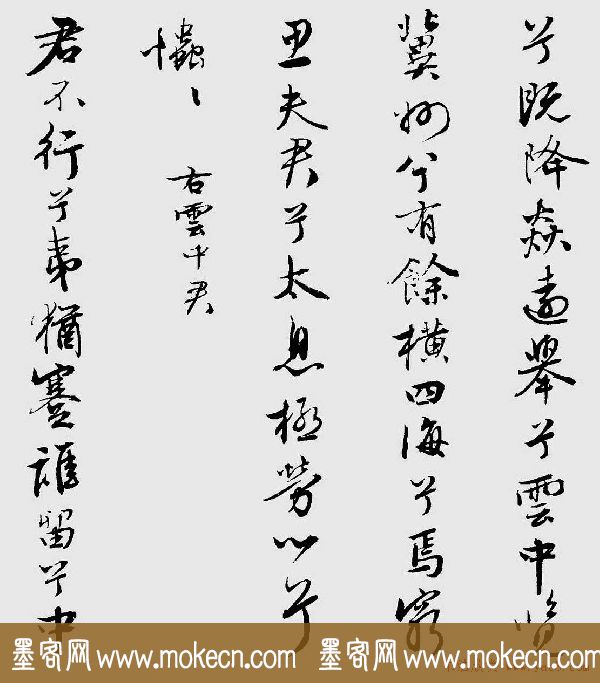 兮既降焱遠舉兮雲中覽
冀州兮有餘橫四海兮焉窮
思夫君兮太息極勞心兮
𢥞〻
右雲中君
君不行兮夷猶蹇誰留兮中
墨客网 www.mokecn.com 墨客网 www.mokecn.com